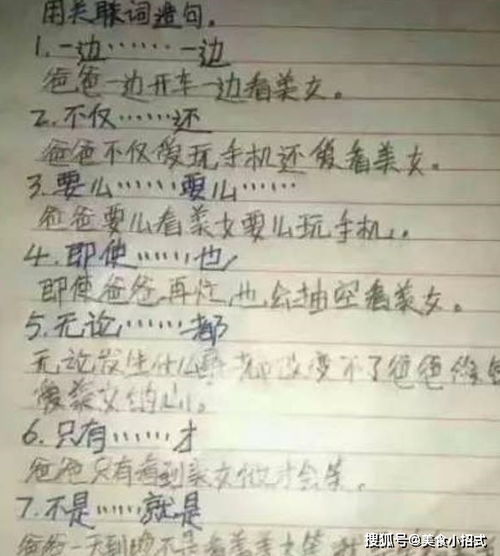 用关联词造句。
1.一边……一边
爸爸一边开车一边看美女。
2.不仅……还
爸爸不仅爱玩手机还爱看美女。
3.要么……要么……
爸爸要么看美女要么玩手机。
4.即使……也
即使爸爸再忙,也会抽空看美女。
5.无论……都
无论发生什么事都改变不了爸爸
爱美女的心。
6.只有……才
爸爸只有看到美女他才会笑。
7.不是……就是
爸爸一天到晚不是看美女
搜狐号@美食小招式